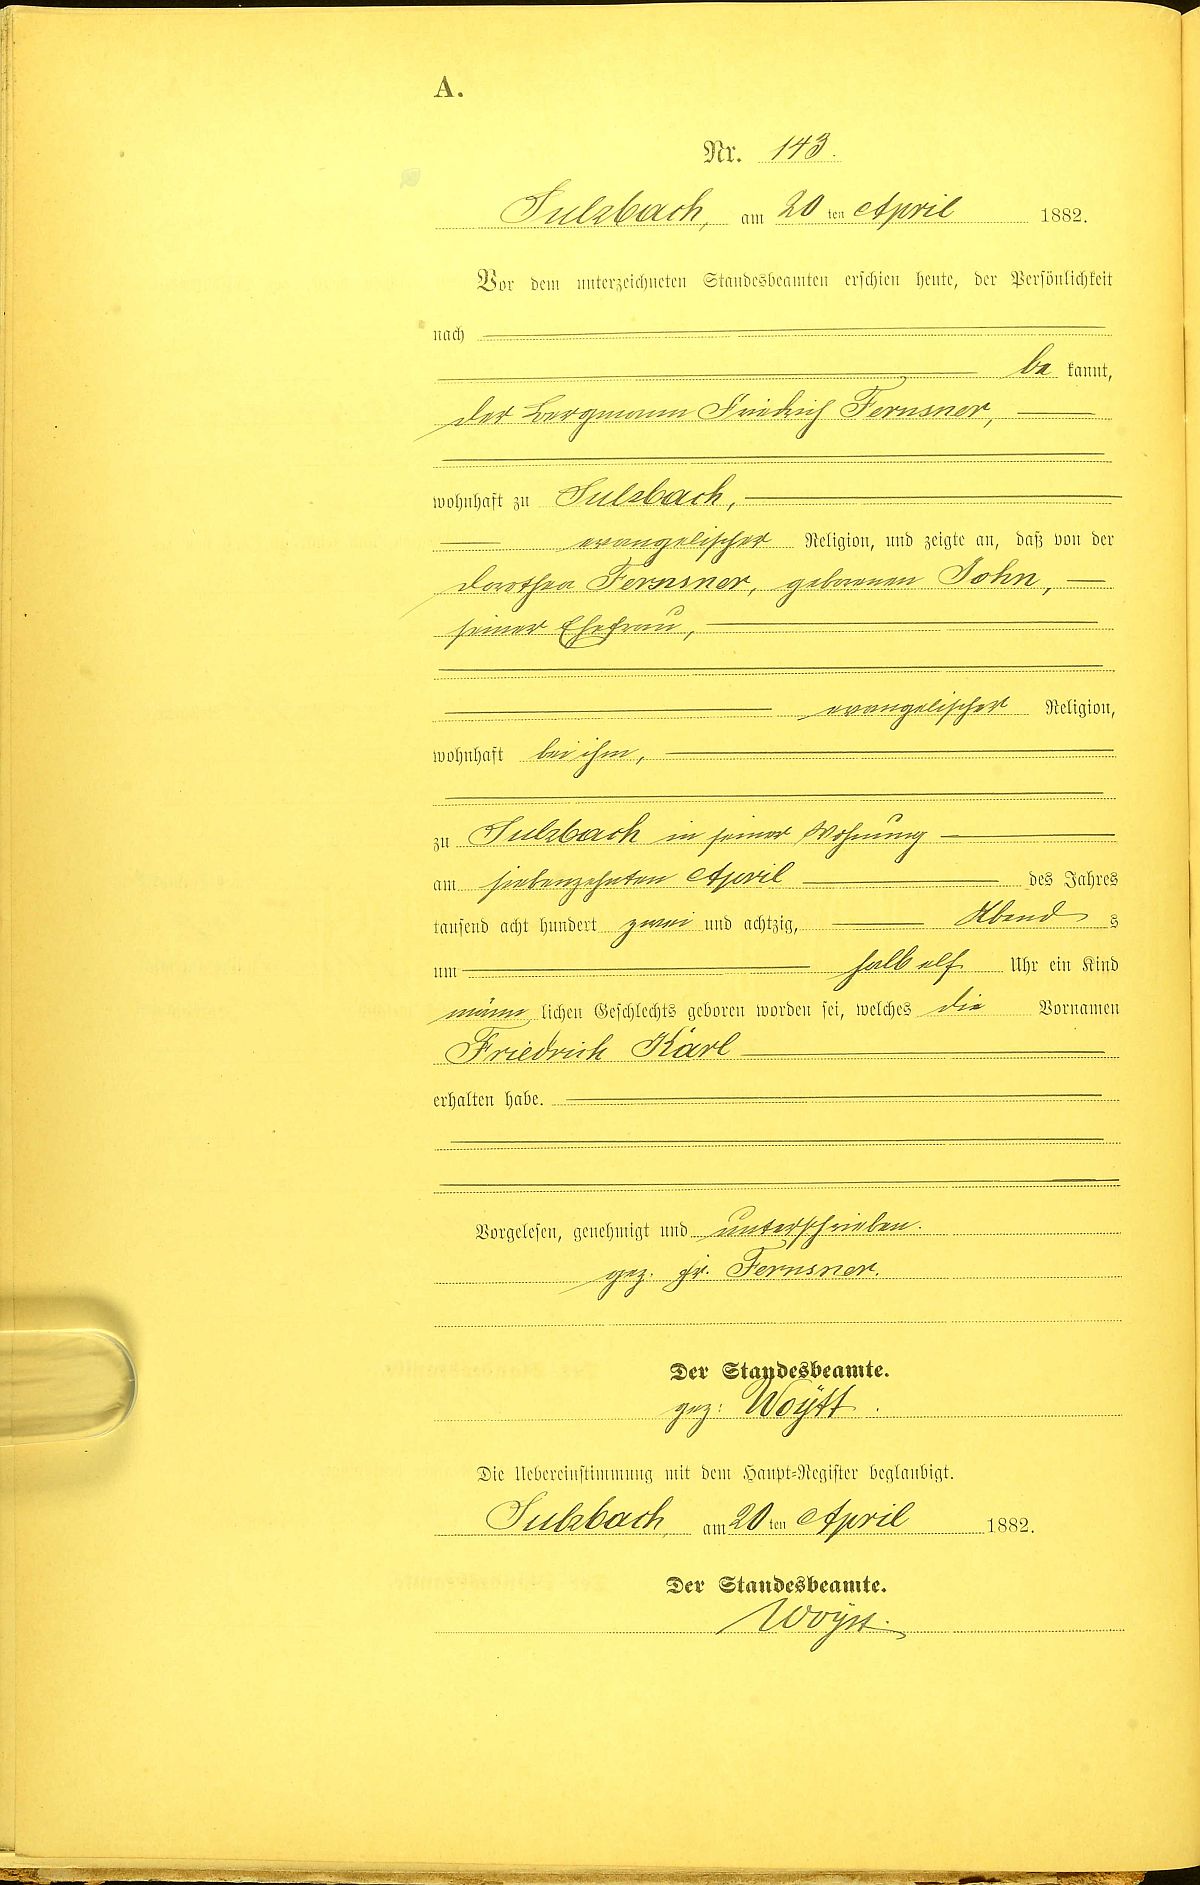 A.
Nr. 143.
Sulzbach, am 20 ten April 1882.
Vor dem unterzeichneten Standesbeamten erschien heute, der Persönlichkeit
nach
be kannt,
der Bergmann Friedrich Fernsner,
wohnhaft zu Sulzbach,
evangelischer Religion, und zeigte an, daß von der
Dorothea Fernsner, geborenen John,
seiner Ehefrau,
evangelischer Religion,
wohnhaft bei ihm,
zu Sulzbach in seiner Wohnung
am siebenzehnten April des Jahres
tausend acht hundert zwei und achtzig, Abend s
um halb elf Uhr ein Kind
männ lichen Geschlechts geboren worden sei, welches die Vornamen
Friedrich Karl
erhalten habe.
Vorgelesen, genehmigt und unterschrieben.
gez. Fr. Fernsner.
Der Standesbeamte.
gez: Woÿtt.
Die Uebereinstimmung mit dem Haupt-Register beglaubigt.
Sulzbach, am 20 ten April 1882.
Der Standesbeamte.
Woÿtt.